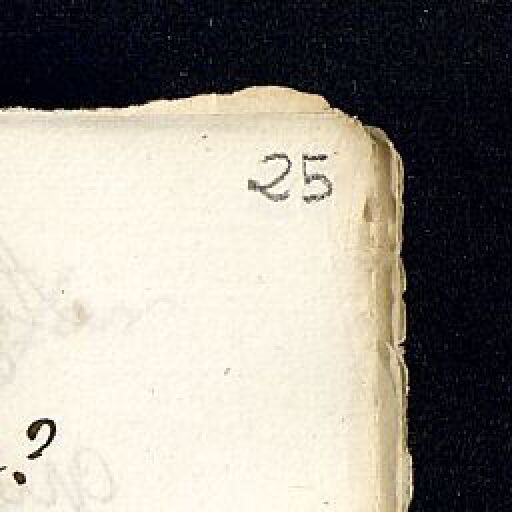 25
?